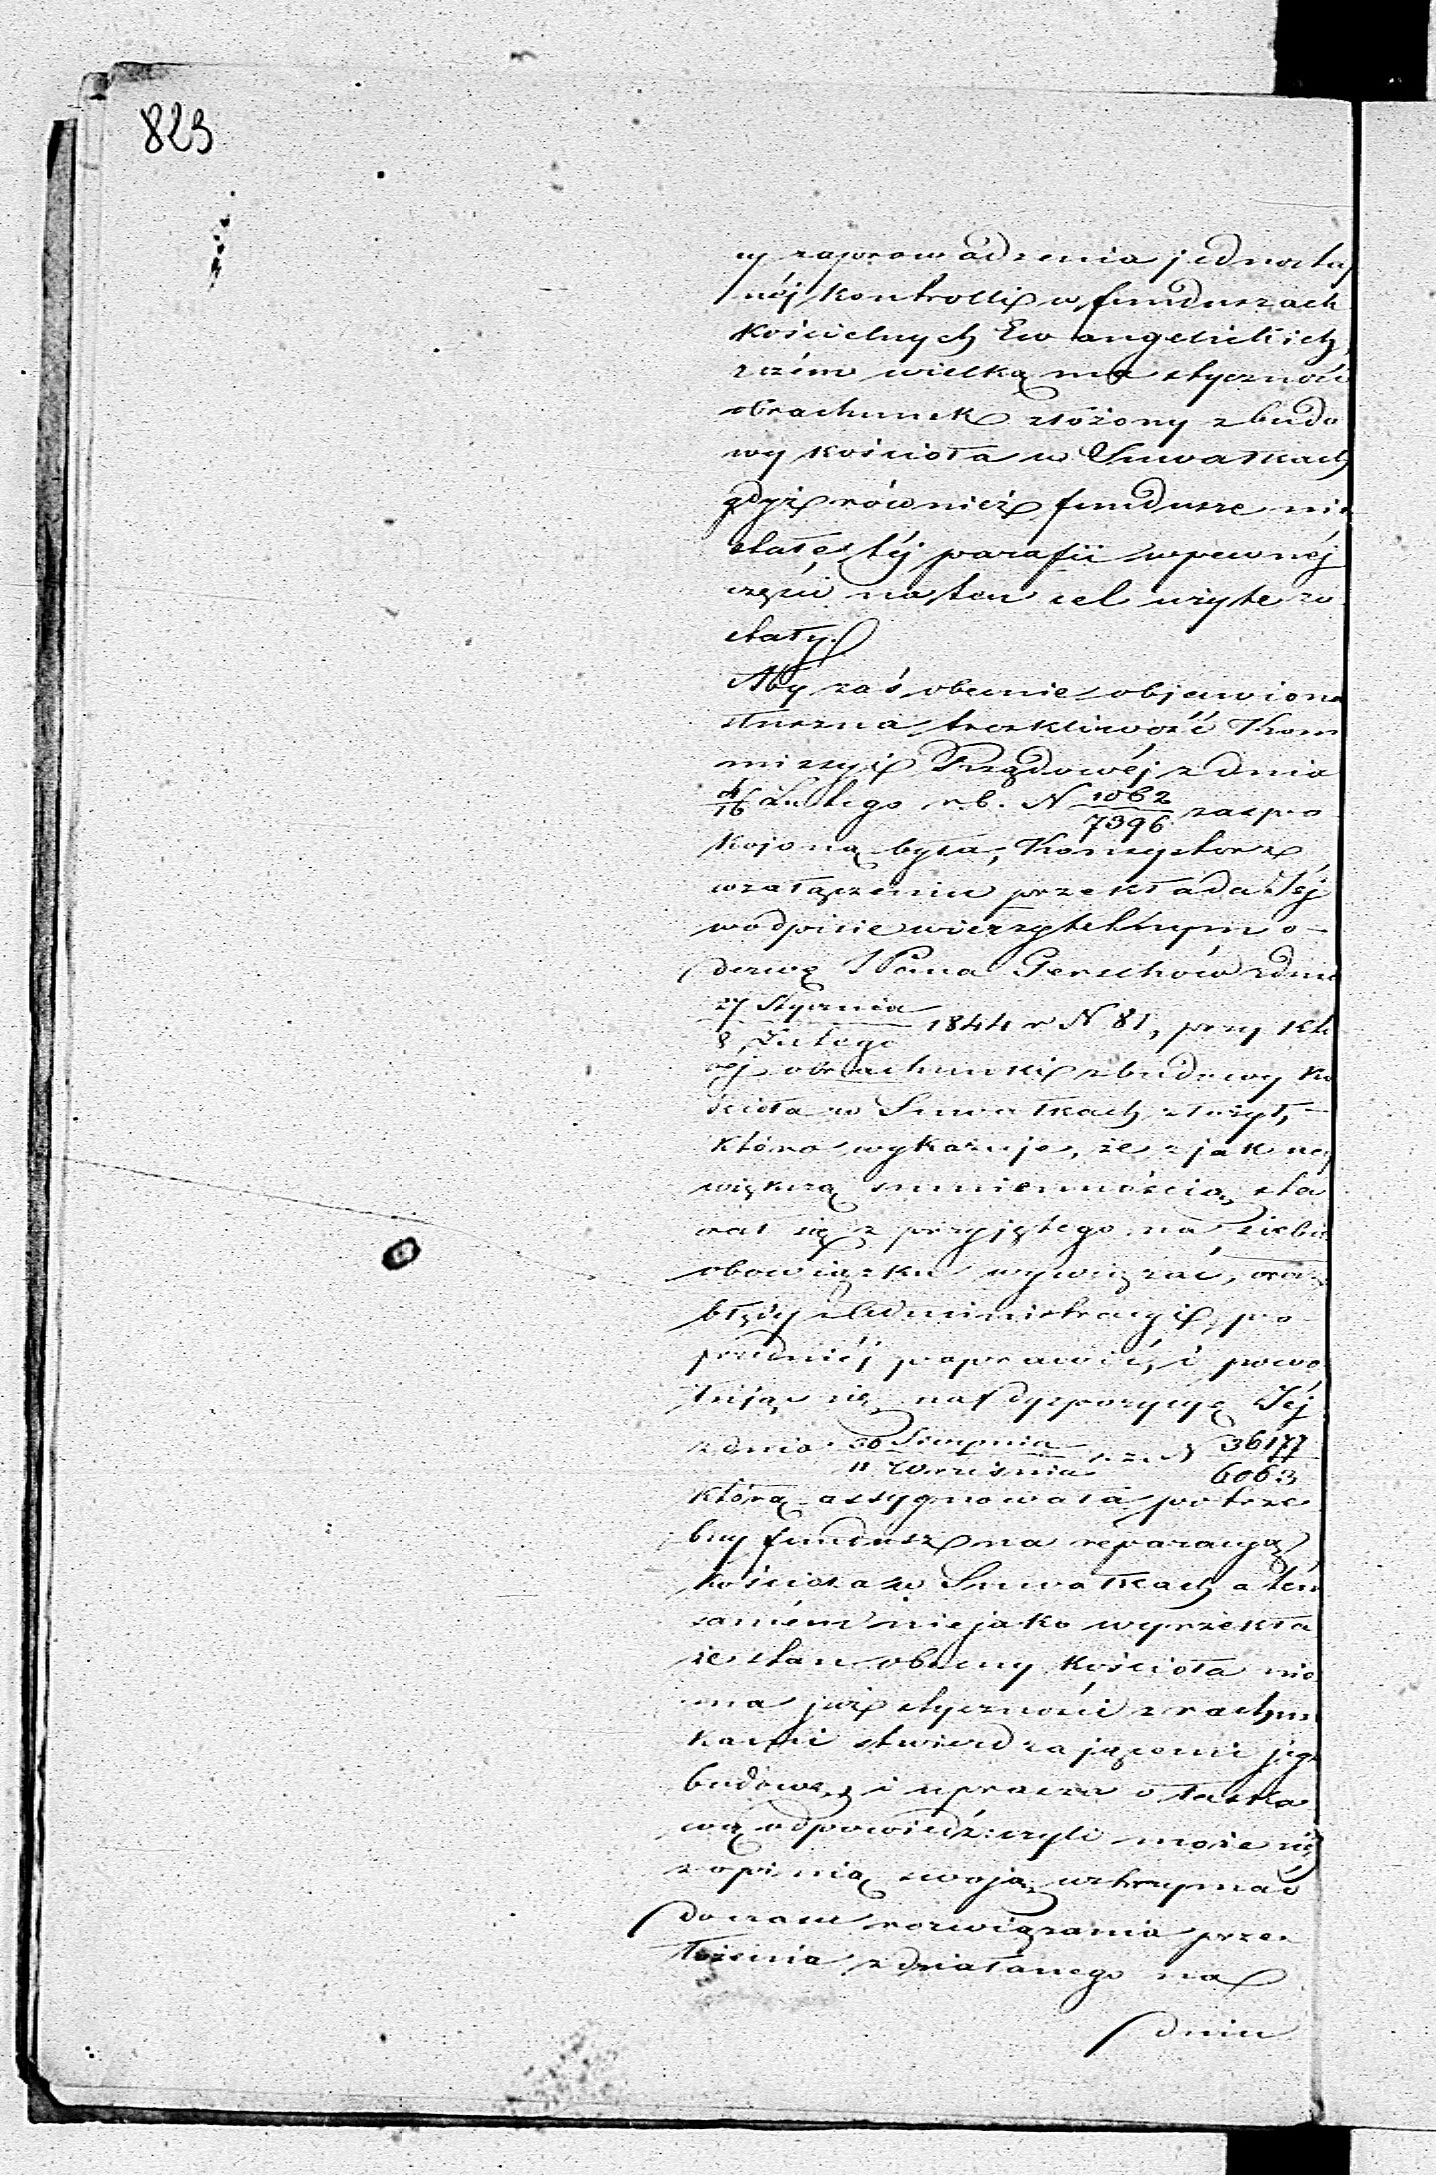 823
y zaprowadzenia jednostaj
nej kontrolli w funduszach
Kościelnych Ewangelickich,
z czém wielką ma styczność
obrachunek złożony z budo
wy kościoła w Suwałkach
gdyż również fundusze nie
stałe téj parafii w pewnéj
części na ten cel użyte zo
stały.
Aby zaś obecnie objawiona
słuszna troskliwość Kom
missyi Rządowéj z dnia
4/16 Lutego r. b. N 1062/7396 zaspo
kojoną była, Konsystorz
w załączeniu przekłada Jéj
w odpisie wierzytelnym o-
dezwę Pana Gerschów z dnia
27 Stycznia/8 Lutego 1844 r N 81, przy któ
réj obrachunki z budowy ko
ścioła w Suwałkach złożył,
która wykazuje, że z jak naj
większą sumiennością sta
rał się z przyjętego na siebie
obowiązku wywiązać, oraz
błędy Administracyi po
przedniéj poprawić, i powo
łując się na dyspozycyę Jéj
z dnia 30 Sierpnia/11 Września r. z. N 36177/6063
którą assygnowała potrze
bny fundusz na reparacyą
kościoła w Suwałkach a tém
samém niejako wyrzekła
że stan obecny Kościoła nie
ma już styczności z rachun
kami stwierdzającemi jego
budowę, i uprasza o łaska
wą odpowiedź: czyli może się
z opinią swoją wstrzymać
do czasu rozwiązania prze
łożenia zdziałanego na
dniu